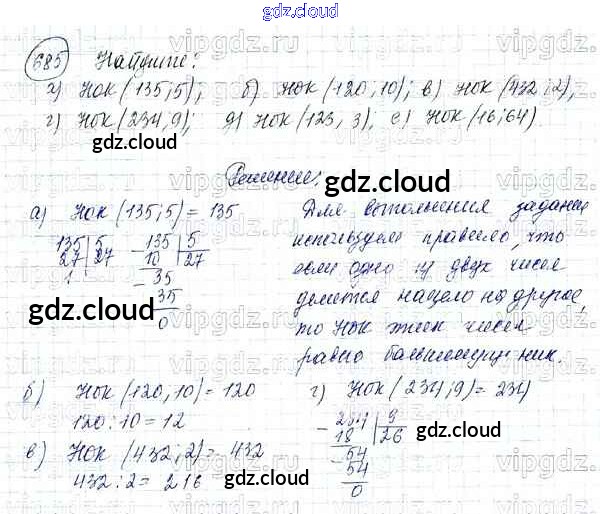 gdz.cloud
685 Найдите:
а) НОК (135; 5); б) НОК (120, 10); в) НОК (432; 2);
г) НОК (234, 9); д) НОК (123, 3); е) НОК (16; 64).
gdz.cloud
Решение:
gdz.cloud
а) НОК (135; 5) = 135
135 | 5
27 | 27
1
135 | 5
10 | 27
35
35
0
Для выполнения задания
используем правило, что
если одно из двух чисел
делится нацело на другое,
то НОК этих чисел
равно большему из них.
gdz.cloud
gdz.cloud
б) НОК (120, 10) = 120
120 : 10 = 12
в) НОК (432; 2) = 432
432 : 2 = 216
г) НОК (234; 9) = 234
234 | 9
18 | 26
54
54
0
gdz.cloud
gdz.cloud
vipgdz.com